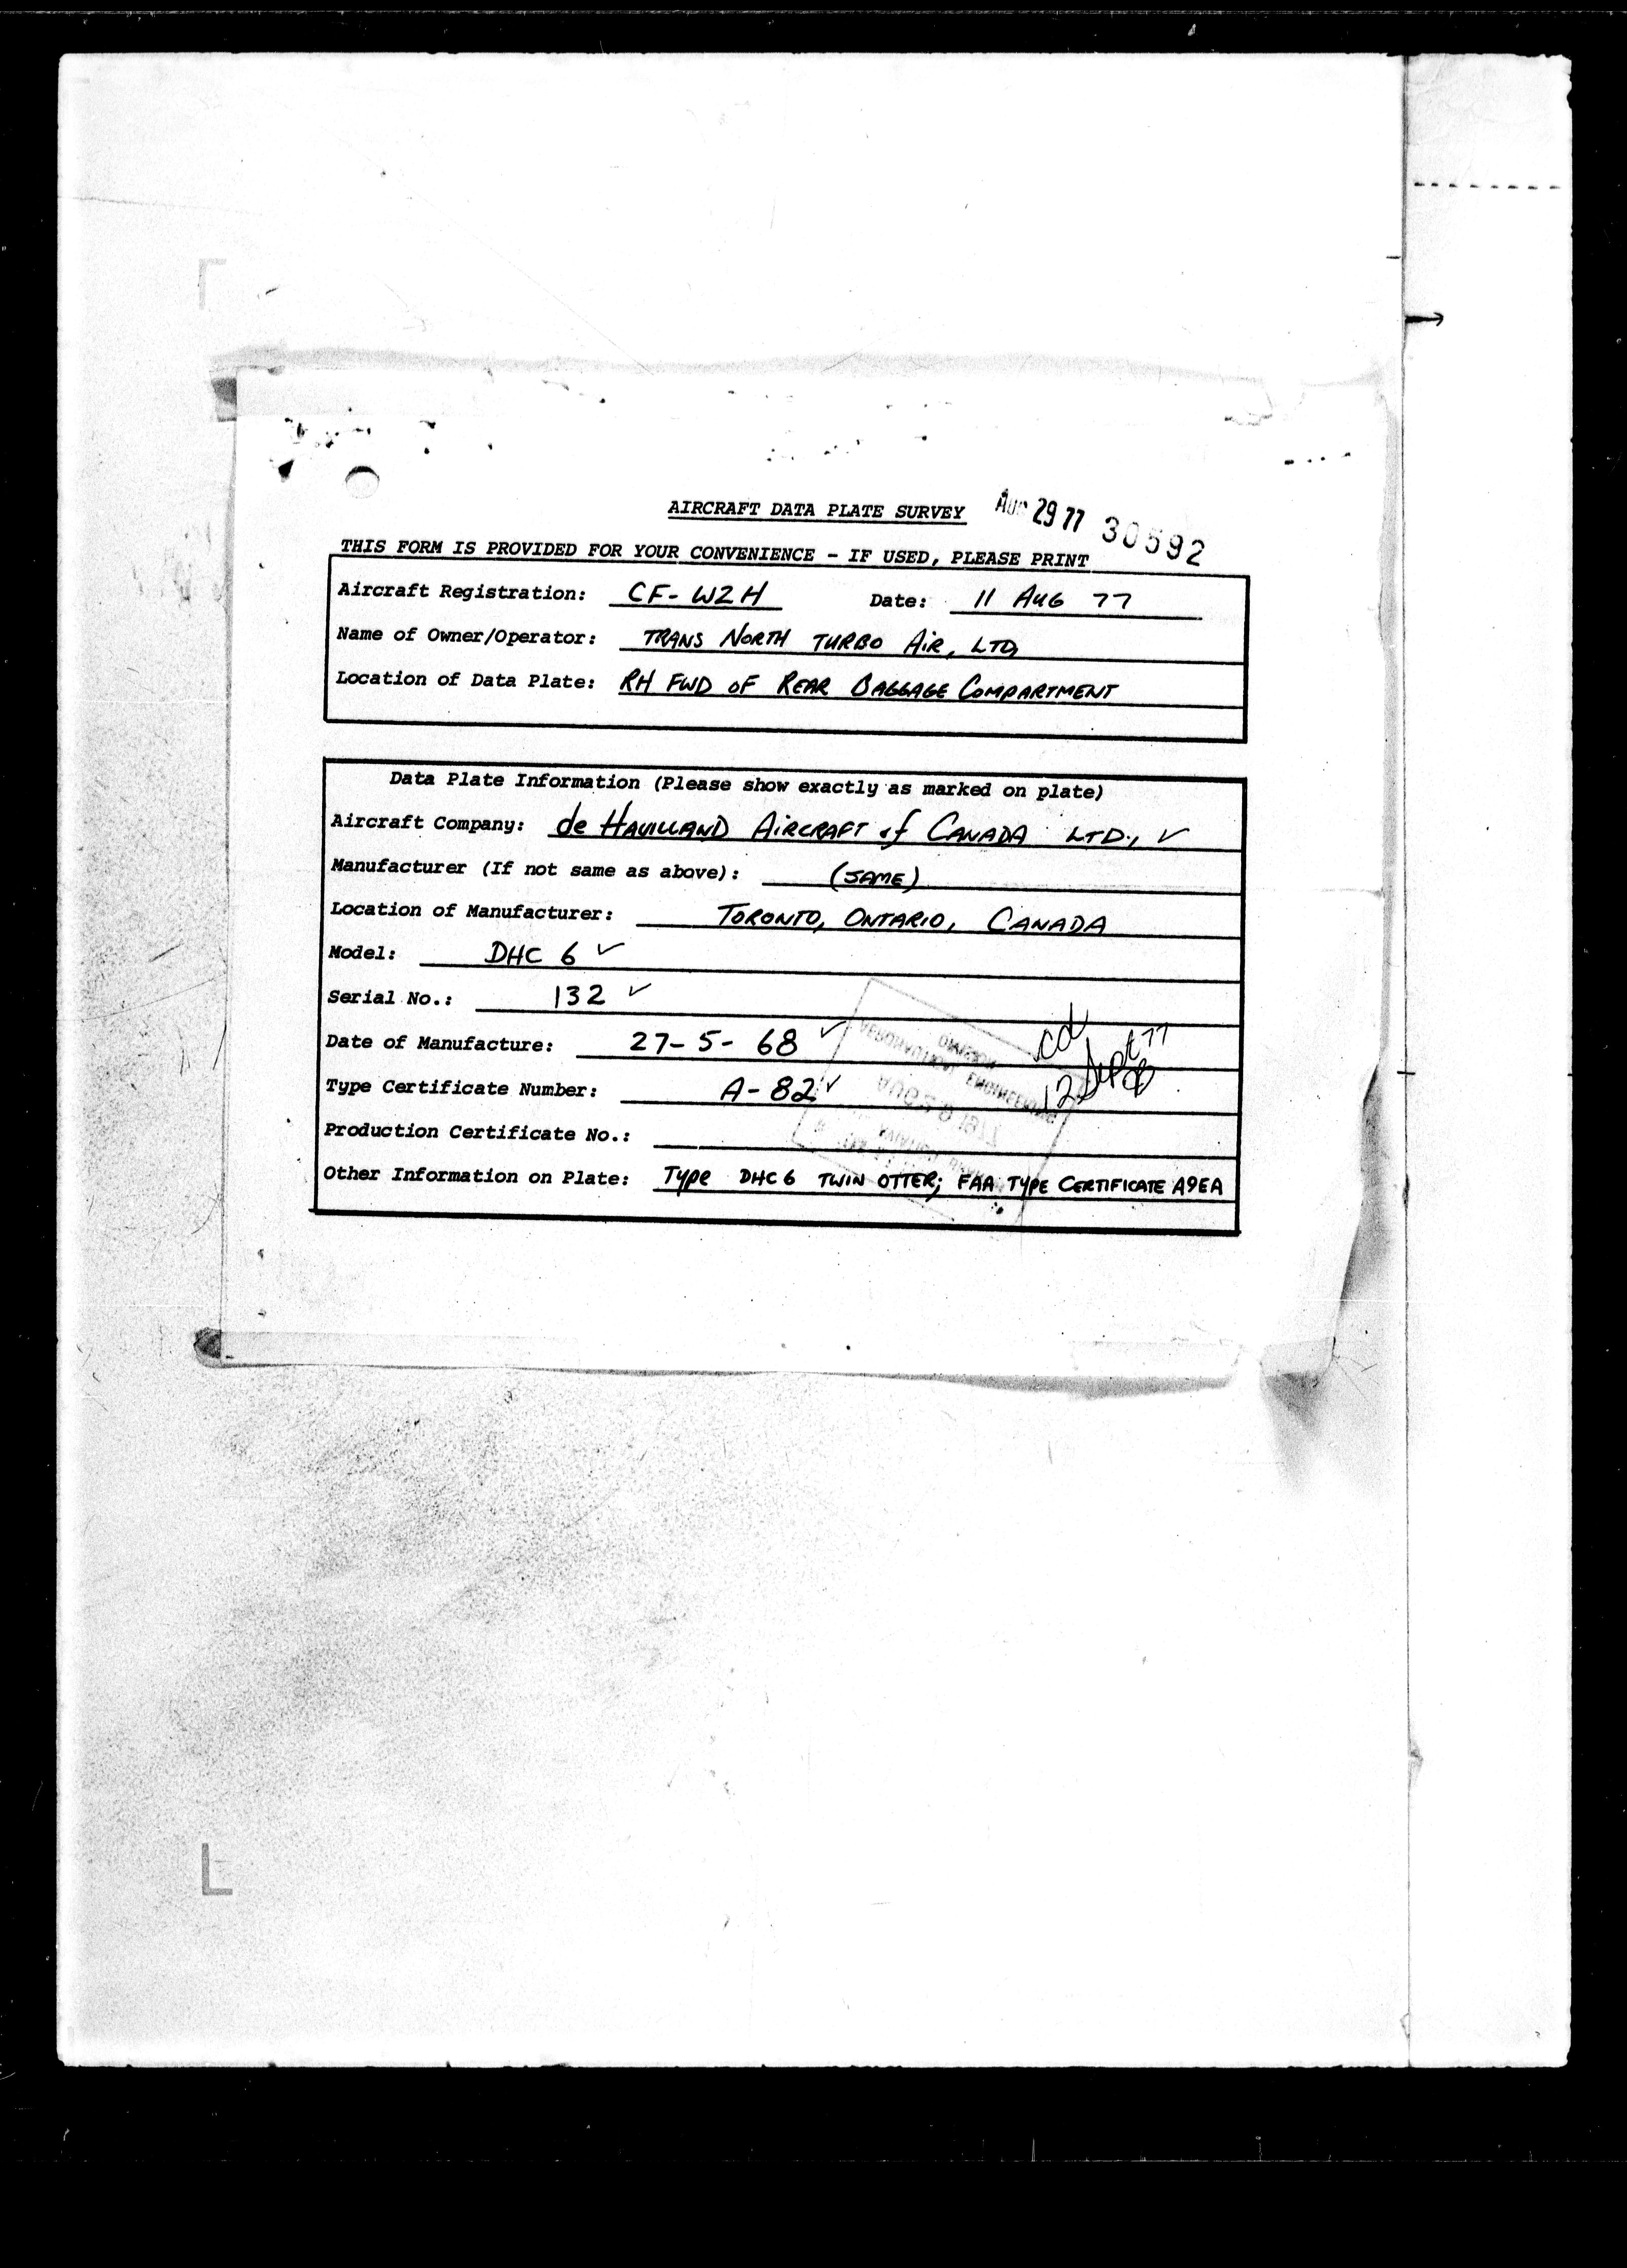 AIRCRAFT DATA PLATE SURVEY AUG 29 77 30592
THIS FORM IS PROVIDED FOR YOUR CONVENIENCE - IF USED, PLEASE PRINT
Aircraft Registration: CF-WZH Date: 11 AUG 77
Name of Owner/Operator: TRANS NORTH TURBO AIR, LTD
Location of Data Plate: RH FWD OF REAR BAGGAGE COMPARTMENT
Data Plate Information (Please show exactly as marked on plate)
Aircraft Company: de HAVILLAND AIRCRAFT of CANADA LTD., ✓
Manufacturer (If not same as above): (SAME)
Location of Manufacturer: TORONTO, ONTARIO, CANADA
Model: DHC 6 ✓
Serial No.: 132 ✓
Date of Manufacture: 27-5-68 ✓
cd
12 Sept 77
Type Certificate Number: A-82 ✓
Production Certificate No.:
Other Information on Plate: Type DHC 6 TWIN OTTER; FAA TYPE CERTIFICATE A9EA
L